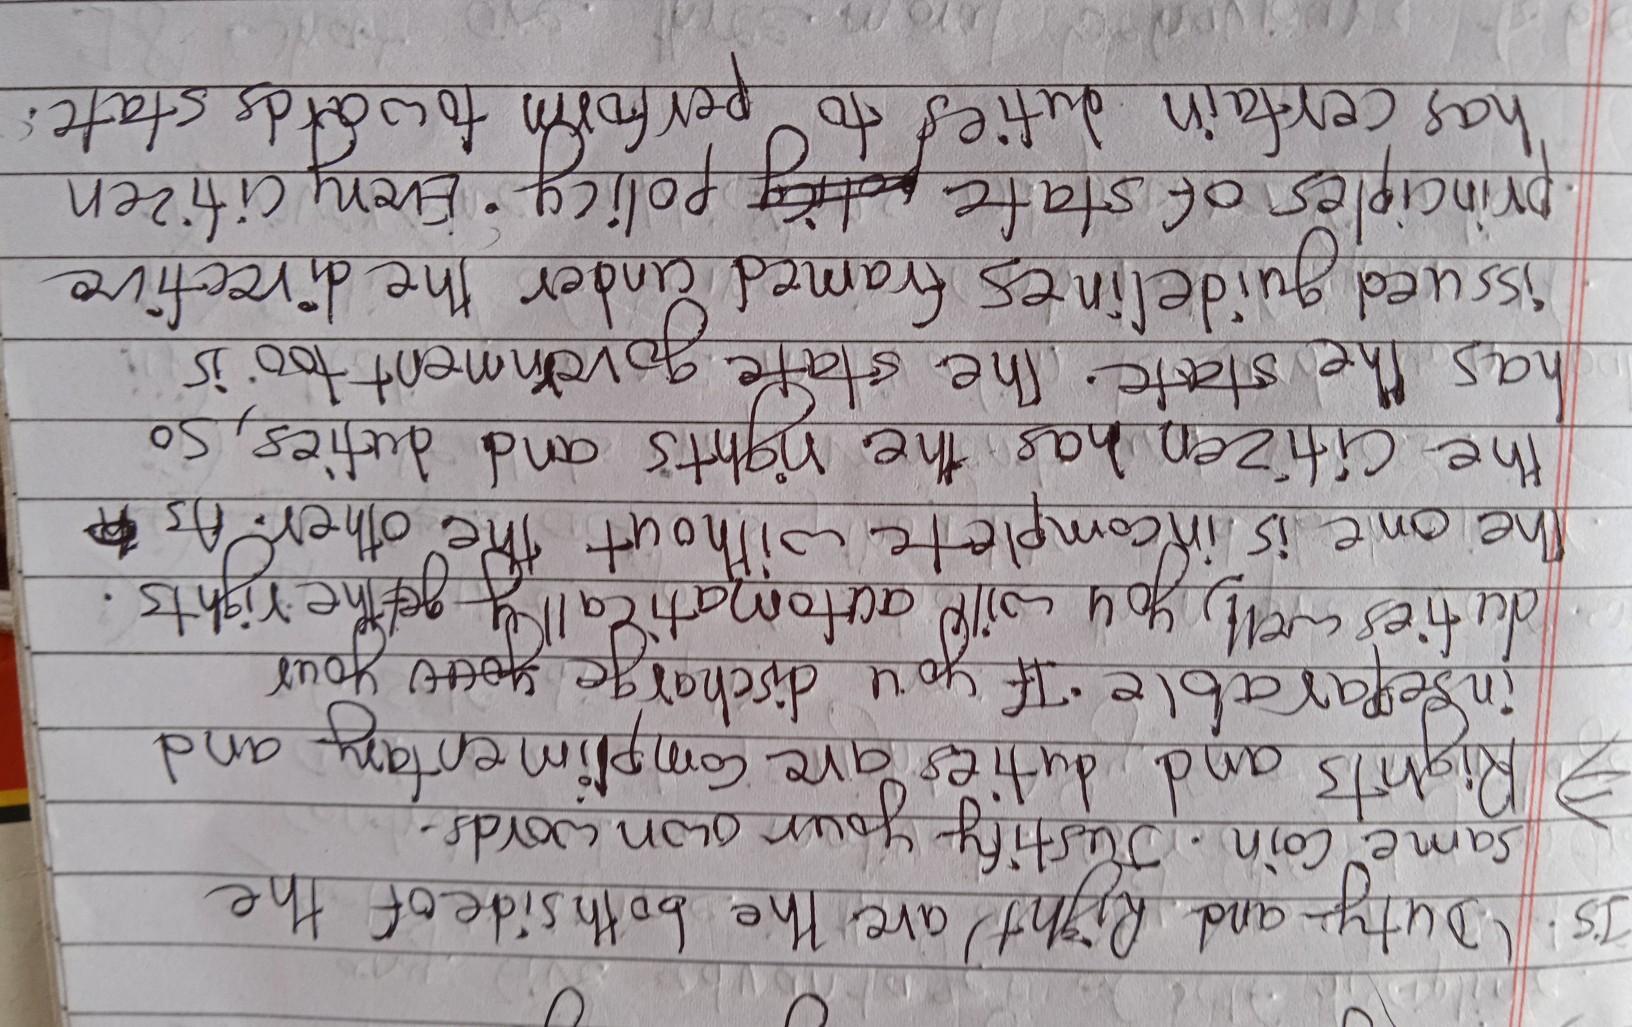 15. (Duty and Right) are the both side of the
same coin. Justify your own words.
⇒ Rights and duties are complimentary and
inseparable. If you discharge your
duties well, you will automatically get the rights.
The one is incomplete without the other. As
the citizen has the rights and duties, so
has the state. The state government too is
issued guidelines framed under the directive
principles of state policy. Every citizen
has certain duties to perform towards state.